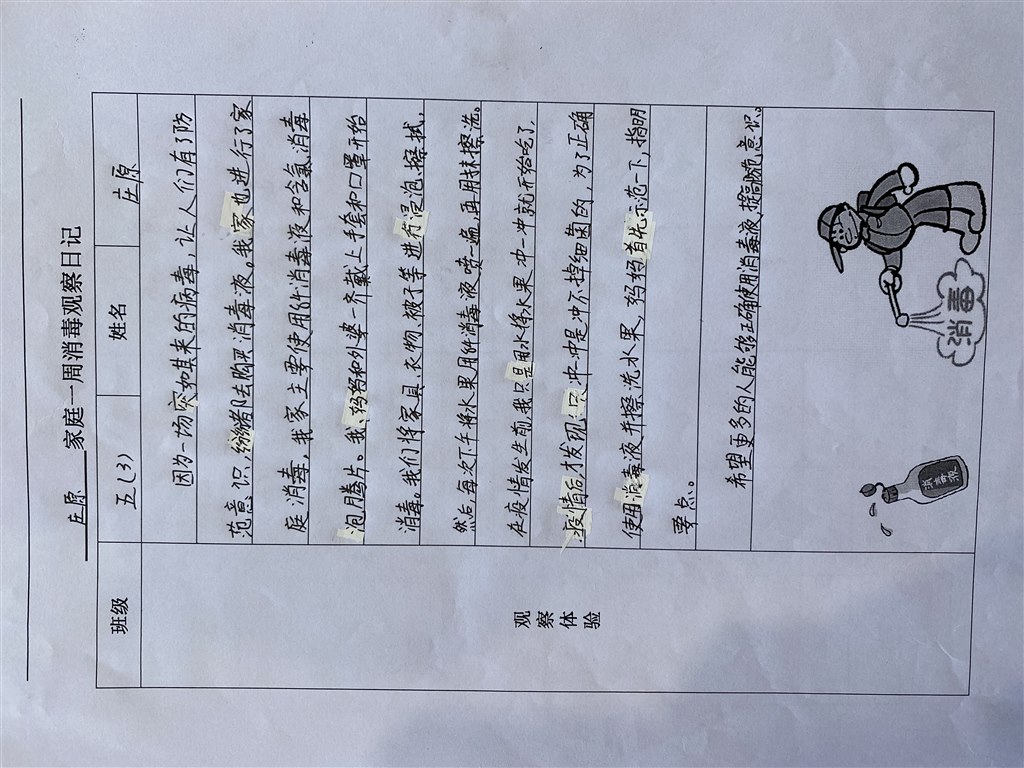 庄原 家庭一周消毒观察日记
班级 五(3) 姓名 庄原
观察体验
因为一场突如其来的病毒,让人们有了防
范意识,纷纷都去购买消毒液。我家也进行了家
庭消毒,我家主要使用84消毒液和含氯消毒
泡腾片。我、妈妈和外婆一齐戴上手套和口罩开始
消毒。我们将家具、衣物、被子等进行浸泡、擦拭,
然后,每次下午将水果用84消毒液喷一遍,再用抹擦洗。
在疫情发生前,我只是用水将水果冲一冲就开始吃了,
疫情后才发现,只冲一冲是冲不掉细菌的,为了正确
使用消毒液并擦洗水果,妈妈首先示范一下,指明
要点。
希望更多的人能够正确使用消毒液,提高防范意识。
消毒液
消毒